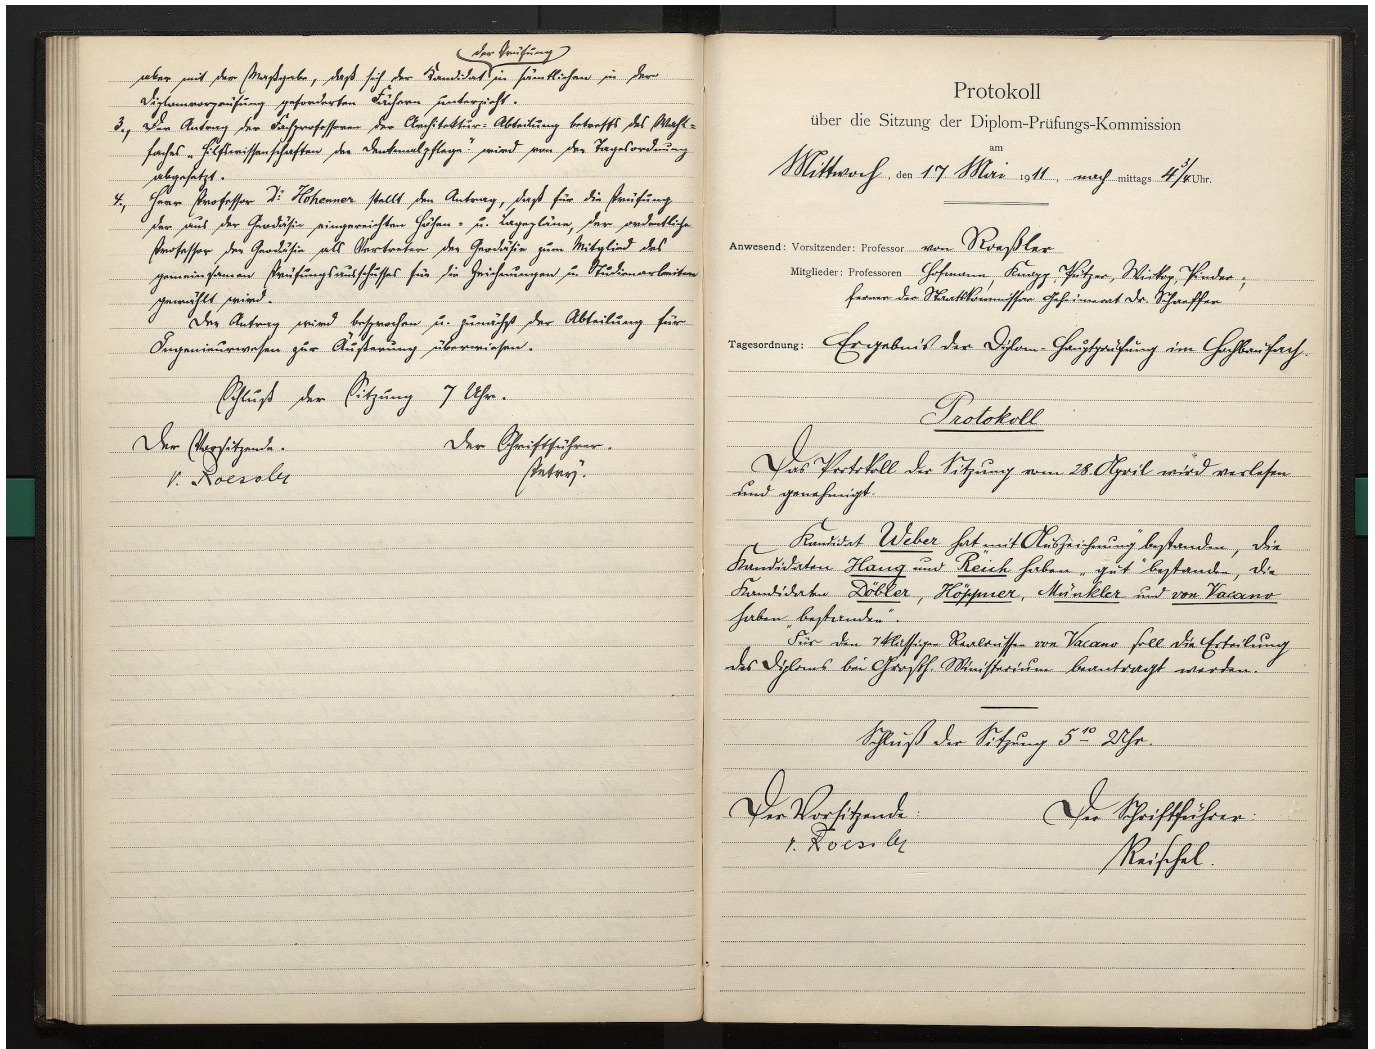 der Prüfung
aber mit der Maßgabe, daß sich der Kandidat in sämtlichen in der
Diplomvorprüfung geforderten Fächern unterzieht.
3., Der Antrag der Fachprofessoren der Architektur-Abteilung betreffs des Wahl-
faches „Hilfswissenschaften der Denkmalpflege" wird von der Tagesordnung
abgesetzt.
4., Herr Professor Dr. Hohenner stellt den Antrag, daß für die Prüfung
der aus der Geodäsie eingereichten Höhen- u. Lagepläne, der ordentliche
Professor der Geodäsie als Vertreter der Geodäsie zum Mitglied des
gemeinsamen Prüfungsausschusses für die Zeichnungen u. Studienarbeiten
gewählt wird.
Der Antrag wird besprochen u. zunächst der Abteilung für
Ingenieurwesen zur Äußerung überwiesen.
Schluß der Sitzung 7 Uhr.
Der Vorsitzende. Der Schriftführer.
v. Roessler Petry.
Protokoll
über die Sitzung der Diplom-Prüfungs-Kommission
am
Mittwoch, den 17 Mai 1911, nach mittags 4 3/4 Uhr.
Anwesend: Vorsitzender: Professor von Roeßler
Mitglieder: Professoren Hofmann, Knapp, Pützer, Wickop, Pinder;
ferner der Staatskommissar Geheimerat Dr. Schaeffer
Tagesordnung: Ergebnis der Diplom-Hauptprüfung im Hochbaufach.
Protokoll
Das Protokoll der Sitzung vom 28. April wird verlesen
und genehmigt.
Kandidat Weber hat „mit Auszeichnung" bestanden, die
Kandidaten Haug und Reich haben „gut" bestanden, die
Kandidaten Döbler, Höppner, Münkler und von Vacano
haben „bestanden".
Für den 7klassigen Realrussen von Vacano soll die Erteilung
des Diploms bei Großh. Ministerium beantragt werden.
Schluß der Sitzung 5 10 Uhr.
Der Vorsitzende: Der Schriftführer:
v. Roessler Reischel.